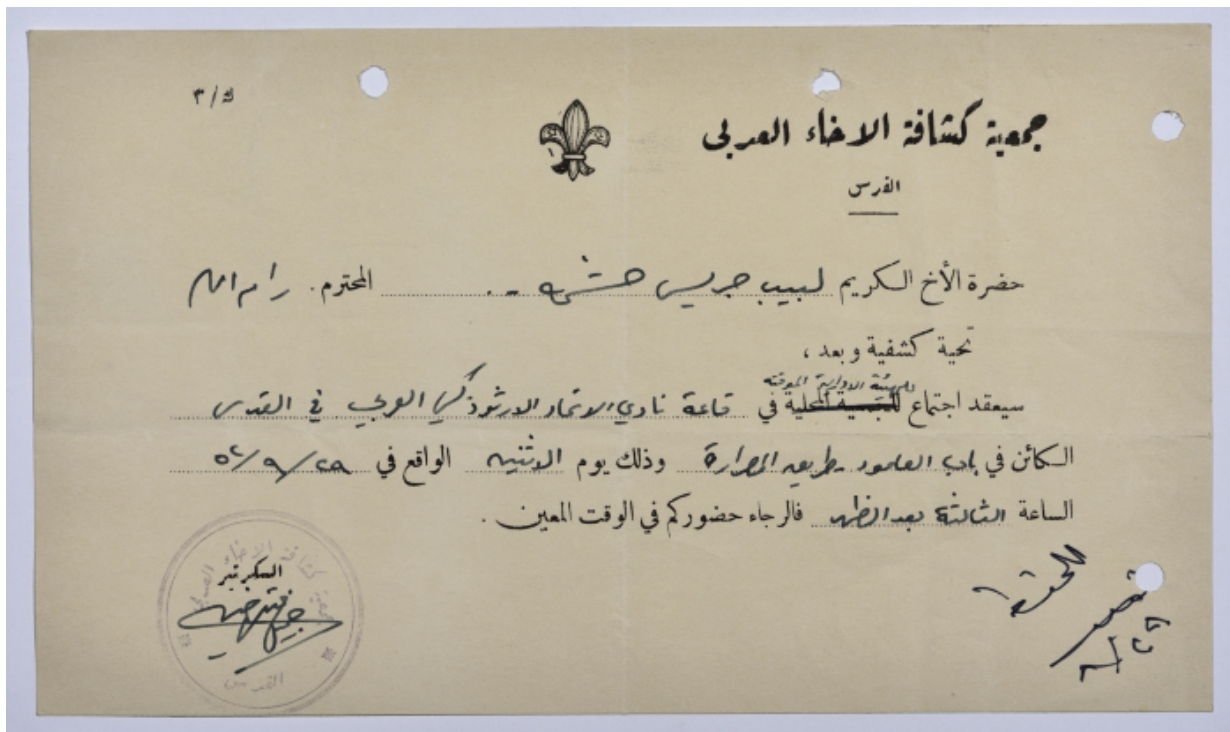 ك/٣
جمعية كشافة الاخاء العربي
القدس
حضرة الأخ الكريم لبيب جريس حشمه المحترم. رام الله
تحية كشفية وبعد،
للهيئة الادارية الموقته
سيعقد اجتماع في قاعة نادي الاتحاد الارثوذكسي العربي في القدس
الكائن في باب العامود - طريق المصرارة وذلك يوم الاثنين الواقع في ٥٢/٩/٢٩
الساعة الثالثة بعد الظهر فالرجاء حضوركم في الوقت المعين.
السكرتير
جمعية كشافة الاخاء العربي
القدس
للحفظ